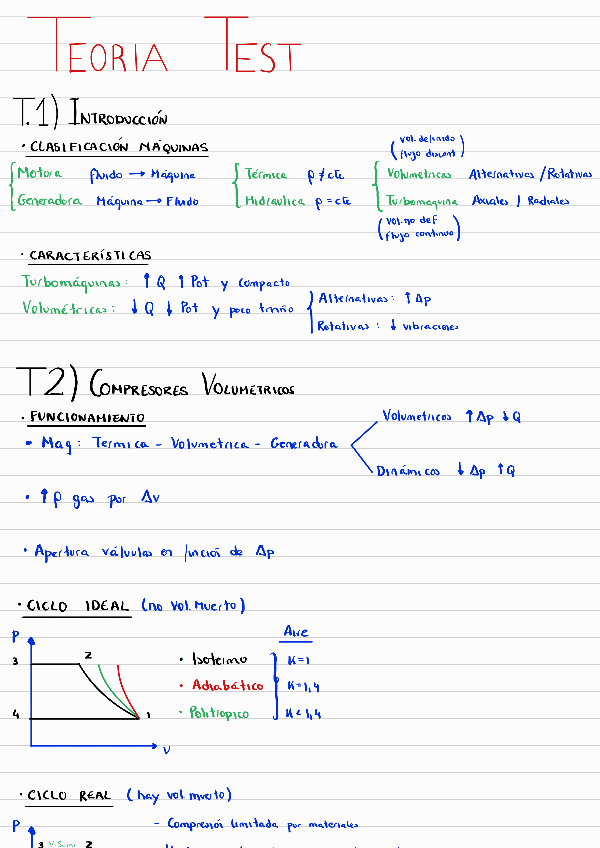 TEORIA TEST
T.1) INTRODUCCIÓN
· CLASIFICACIÓN MÁQUINAS
(vol. definido flujo discont)
Motora fluido → Máquina
Térmica ρ ≠ cte
Volumetricas Alternativas / Rotativas
Generadora Máquina → Fluido
Hidraulica ρ = cte
Turbomaquina Axiales / Radiales
(vol. no def flujo continuo)
· CARACTERÍSTICAS
Turbomáquinas: ↑ Q ↑ Pot y compacto
Volumétricas: ↓ Q ↓ Pot y poco tmño
Alternativas: ↑ Δp
Rotativas: ↓ vibraciones
T2) COMPRESORES VOLUMETRICOS
· FUNCIONAMIENTO
Volumetricos ↑ Δp ↓ Q
• Maq: Termica - Volumetrica - Generadora
Dinámicos ↓ Δp ↑ Q
• ↑ p gas por Δv
• Apertura válvulas en función de Δp
· CICLO IDEAL (no Vol. Muerto)
P
Aire
3 2
• Isotermo K=1
• Adiabático K=1,4
• Politropico K<1,4
4 1
V
· CICLO REAL (hay vol muerto)
P
- Compresión limitada por materiales
3 2